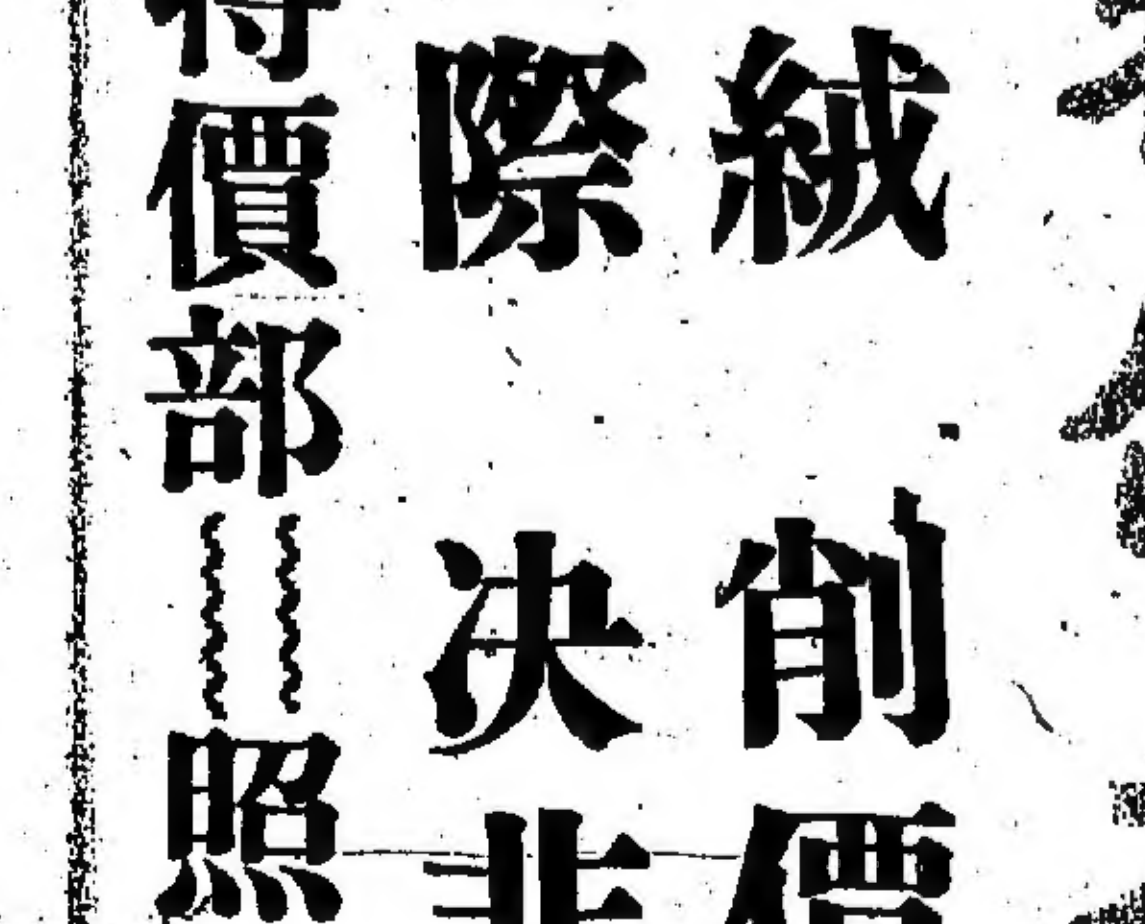 絨 削價
際 決非
特價部 照